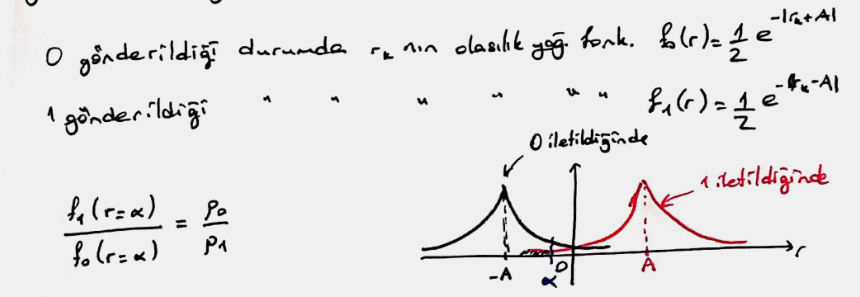 0 gönderildiği durumda rₖ nın olasılık yoğ. fonk. f₀(r) = 1/2 e^(-|rₖ+A|)
1 gönderildiği " " " " " " f₁(r) = 1/2 e^(-|rₖ-A|)
0 iletildiğinde
1 iletildiğinde
f₁(r=α) / f₀(r=α) = P₀ / P₁
-A α 0 A r